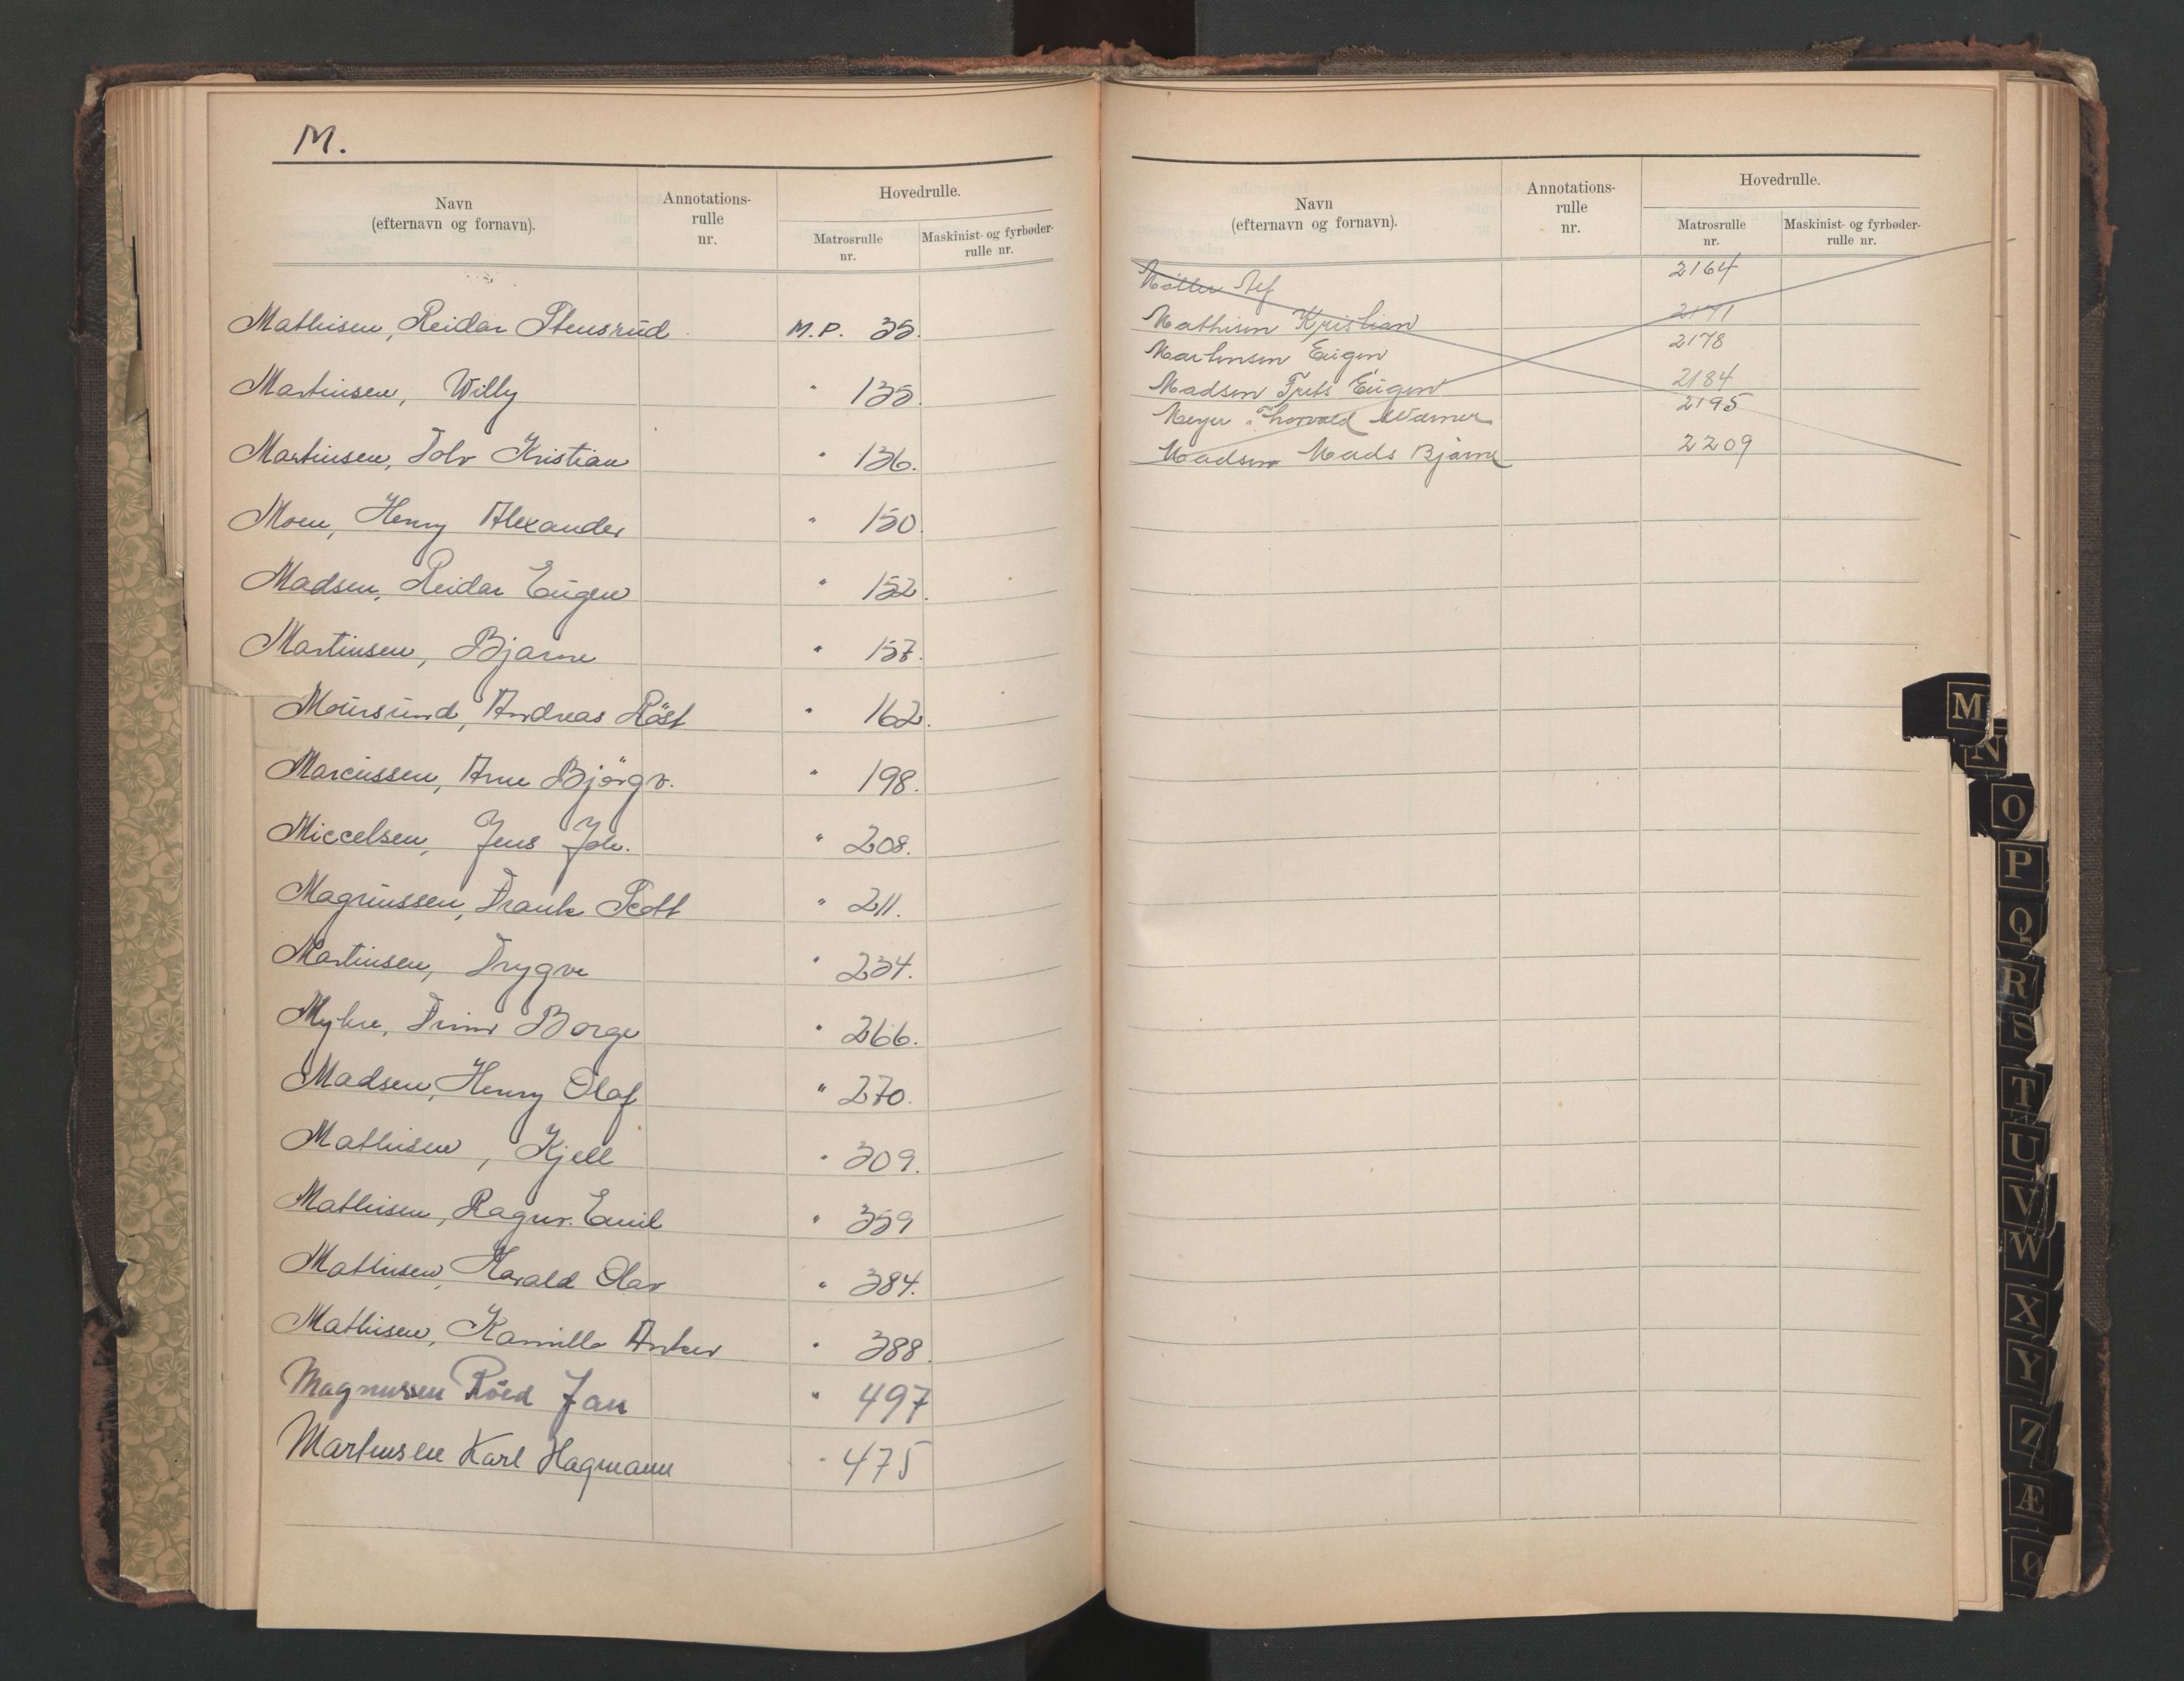 M.
Navn (efternavn og fornavn). Annotations-rulle nr. Hovedrulle. Matrosrulle nr. Maskinist- og fyrbøder-rulle nr.
Mathisen, Reidar Stensrud M.P. 35.
Martinsen, Willy " 135.
Martinsen, Rolv Kristian " 136.
Moen, Henry Alexander " 150.
Madsen, Reidar Eugen " 152.
Martinsen, Bjarne " 157.
Moursund, Andreas Röst " 162.
Marcussen, Arne Björgv. " 198.
Miccelsen, Jens Joh. " 208.
Magnussen, Frank Scott " 211.
Martinsen, Trygve " 234.
Myhre, Finn Borge " 266.
Madsen, Henry Olaf " 270.
Mathisen, Kjell " 309.
Mathisen, Ragnv. Emil " 359
Mathisen, Harald Olav " 384.
Mathisen, Kamillo Anker " 388.
Magnussen Röed Jan " 497
Martinsen Karl Hagmann " 475
Navn (efternavn og fornavn). Annotations-rulle nr. Hovedrulle. Matrosrulle nr. Maskinist- og fyrbøder-rulle nr.
Møller 2164
Mathisen Kristian 2171
Martinsen Eugen 2178
Madsen Frits Eugen 2184
Meyer Thorvald Werner 2195
Madsen Mads Bjarne 2209
M
N
O
P
Q
R
S
T
U
V
W
X
Y
Z
Æ
Ø